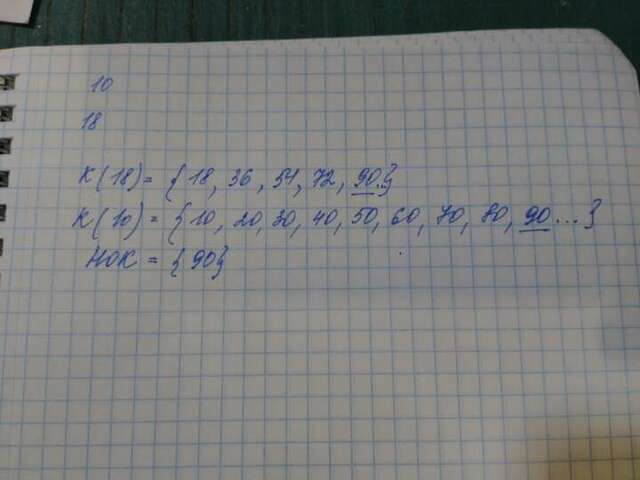 10
18
К(18)= {18, 36, 54, 72, 90..}
К(10)= {10, 20, 30, 40, 50, 60, 70, 80, 90...}
НОК = {90}